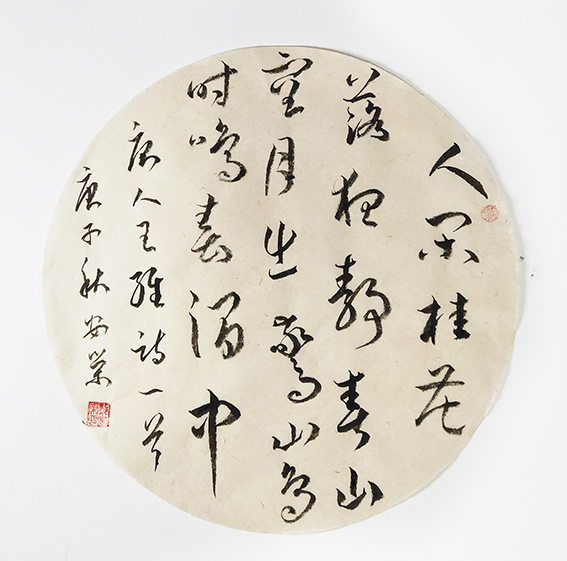 人闲桂花
落夜静春山
空月出驚山鸟
时鸣春涧中
唐人王维诗一首
庚子秋安荣